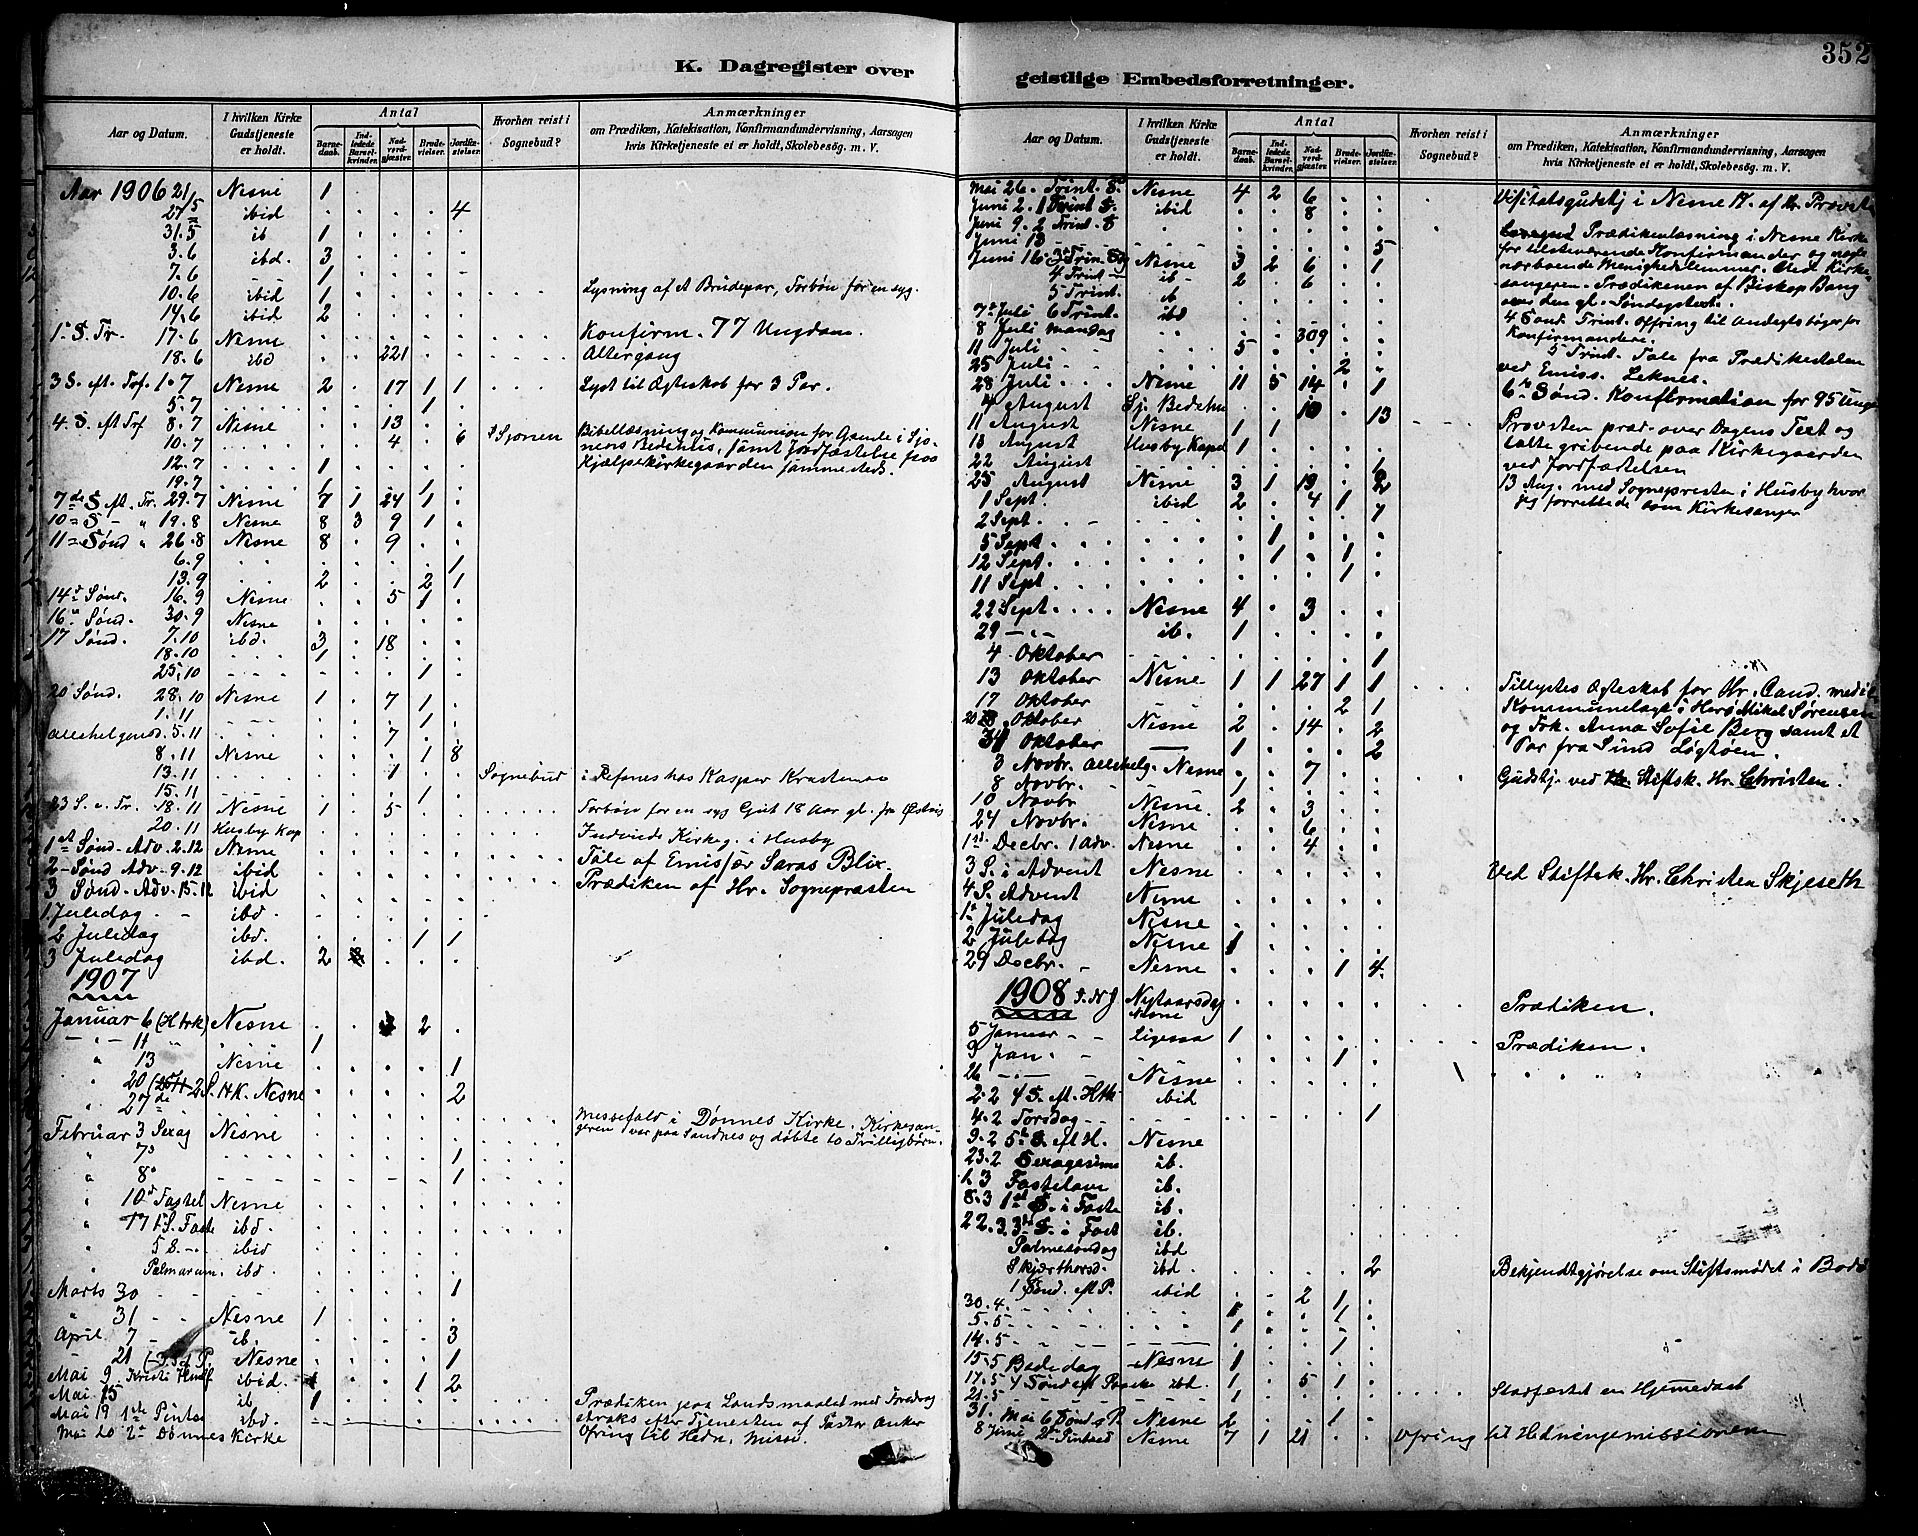 352
K. Dagregister over geistlige Embedsforretninger.
Aar og Datum. I hvilken Kirke Gudstjeneste er holdt. Antal Barnedaab. Indledede Barselkvinder. Nadverdgjæster. Brudevielser. Jordfæstelser. Hvorhen reist i Sognebud? Anmærkninger om Prædiken, Katekisation, Konfirmandundervisning, Aarsagen hvis Kirketjeneste ei er holdt, Skolebesøg. m. V.
Aar 1906 21/5 Nesne 1
27/5 ibid 4
31.5 ib 1
3.6 ibd. 3
7.6 - - 1
10.6 ibid 1 Lysning af et Brudepar, Forbøn for en syg.
14.6 ibid 2
1. S. Tr. 17.6 Nesne Konfirm. 77 Ungdom.
18.6 ibd 221 Altergang
3 S. eft. Tref. 1.7 Nesne 2 17 1 1 Lyst til Ægteskab for 3 Par.
5.7 1
4. S. eft Tref 8.7 Nesne 13
10.7 4 6 Sjonen Bibellæsning og Kommunion for Gamle i Sjonens Bedehus, samt Jordfæstelse paa
12.7 1 Hjælpekirkegaarden sammesteds.
19.7 1 1
7de S eft. Tr. 29.7 Nesne 7 1 24 1
10 S - " 19.8 Nesne 8 3 9 1
11 Sønd " 26.8 Nesne 8 9
6.9 1
13.9 2 2 1
14 Sønd. 16.9 Nesne 5 1
16 Sønd. 30.9 Nesne
17 Sønd. 7.10 ibd. 3 18
18.10 1
25.10 1
20 Sønd. 28.10 Nesne 1 7 1
1.11 1
Allehelgensd. 5.11 7
8.11 Nesne 1 8
13.11 1 Sognebud i Refsnes hos Kasper
15.11 1
23 S. e. Tr. 18.11 Nesne 1 5 Forbøn for en syg Gut 18 Aar gl. fra
20.11 Husby Kap Indviede Kirkeg. i Husby
1st Sønd. Adv. 2.12 Nesne Tale af Emissær Saras Blix.
2 Sønd Adv. 9.12 ibid Prædiken af Hr. Sognepræsten
3 Sønd. Adv. 15.12 ibid
1 Juledag ibd
2 Juledag ibd. 1 1
3 Juledag ibd. 2
1907
Januar 6 (H trk) Nesne 3 2
" 11 1
" 13 Nesne 1
" 20 2 S. HK. Nesne
" 27de 2
Messefald i Dønnes Kirke. Kirkesangeren var paa Sandnes og døbte to Trillingbørn.
Februar 3 Sexag Nesne
" 7 1
" 8 1
" 10 Fastel Nesne
" 17 1 S. Faste ibd.
" 5 S. ibid
" Palmarum. ibd.
Marts 30 1
" 31 Nesne 1
April 7 ib. 3
21 (3 S. ef P. Nesne 1
Mai 9 Kristi Himf ibid. 1 1 2
Mai 15 ib 1 Prædiken paa Landsmaalet med Foredrag
Mai 19 1ste Pintse ibd. straks efter Tjenesten af Pastor Anker
Mai 20 2 Dønnes Kirke Ofring til Hedn. Miss.
Aar og Datum. I hvilken Kirke Gudstjeneste er holdt. Antal Barnedaab. Indledede Barselkvinder. Nadverdgjæster. Brudevielser. Jordfæstelser. Hvorhen reist i Sognebud? Anmærkninger om Prædiken, Katekisation, Konfirmandundervisning, Aarsagen hvis Kirketjeneste ei er holdt, Skolebesøg. m. V.
Mai 26. Trint. S. Nesne 4 2 6 Visitatsgudstj i Nesne 17. af Hr. Provst
Juni 2. 1 Trint S. ibid 8
Juni 9. 2 Trint. S Prædikenlæsning i Nesne Kirke
Juni 13 5 for tilstuerende Konfirmander og nogle
Juni 16. 3 Trin. Nesne 3 2 6 1 nærboende Menighedslemmer. Ved Kirke-
4 Trint ib 2 6 sangeren. Prædikenen af Biskop Bang
5 Trint. ib over den gl. Søndagstext.
7 Juli 6 Trint. ibd 4 Sønd. Trint. Ofring til Andagtsbøger for
8 Juli mandag 309 Konfirmandere.
11 Juli 5 5 Trint. Tale fra Prædikestolen
25 Juli 2 ved Emiss. Leknes.
28 Juli Nesne 11 5 14 1 6te Sønd. Konfirmation for 95 Unge
4 August Sj. Bedehu 10 13 Provsten præd. over Dagens Text og
11 August Nesne 1 1 talte gribende paa Kirkegaarden
13 August Husby Kapel 1 ved Jordfæstelsen
22 August 1
25 August Nesne 3 1 13 2 13 Aug. med Sognepresten i Husby hvor
1 Sept. ibid 2 4 1 jeg forrettede som Kirkesanger
2 Sept. 7
5 Sept 1
12 Sept. 1 1
11 Sept. 1
22 Sept. Nesne 4 3
29 - ib. 1
4 Oktober 1
13 Oktober Nesne 1 1 27 1 1 Tillystes Ægteskab for Hr. Cand. med &
17 Oktober 2 1 Kommunelæge i Herø Mikal Sørensen
20 Oktober Nesne 2 14 2 og Frk. Anna Sofie Berg samt et
31 Oktober 1 2 Par fra Sund Løgtøen.
3 Novbr. Allehelg. Nesne 7 Gudstj. ved Stiftsk. Hr. Christen.
8 Novbr. 1
10 Novbr Nesne 2 3
24 Novbr. Nesne 6
1st Decbr. 1 Adv. Nesne 4
3 S. i Advent Nesne Ved Stiftsk. Hr. Christen Skjeseth
4 S. Advent Nesne
1 Juledag Nesne
2 Juledag Nesne 1
29 Decbr. Nesne 1 4
1908 Nytaarsdag Nesne Prædiken.
5 Januar Ligesaa 1 Prædiken.
9 Jan. 1
26 Nesne
2.2 4 S. ef. Hth. ibid
4.2 Torsdag 1
9.2 5te S. eft H. Nesne
23.2 Sexagesima ib.
1.3 Fastelavn ib.
8.3 1st S. i Faste ib.
22.3 3de S. i Fast ib.
Palmesøndag ibd
Skjærthorsd. ibd. 2 Bekjendtgjørelse om Stiftsmødet i Bodø
1 Sønd. eft P. ibid 2 1
30.4 1 1
5.5 1
14.5 1
15.5 Bededag Nesne 1
17.5 4 Sønd eft Paaske ibd. 1 5 1 Stadfæstet en Hjemmedaab
21.5 1
31. Mai 6 Sønd e P. Nesne 2 1
8 Juni 2 Pintsed Nesne 7 1 21 Ofring til Hedningemissionen